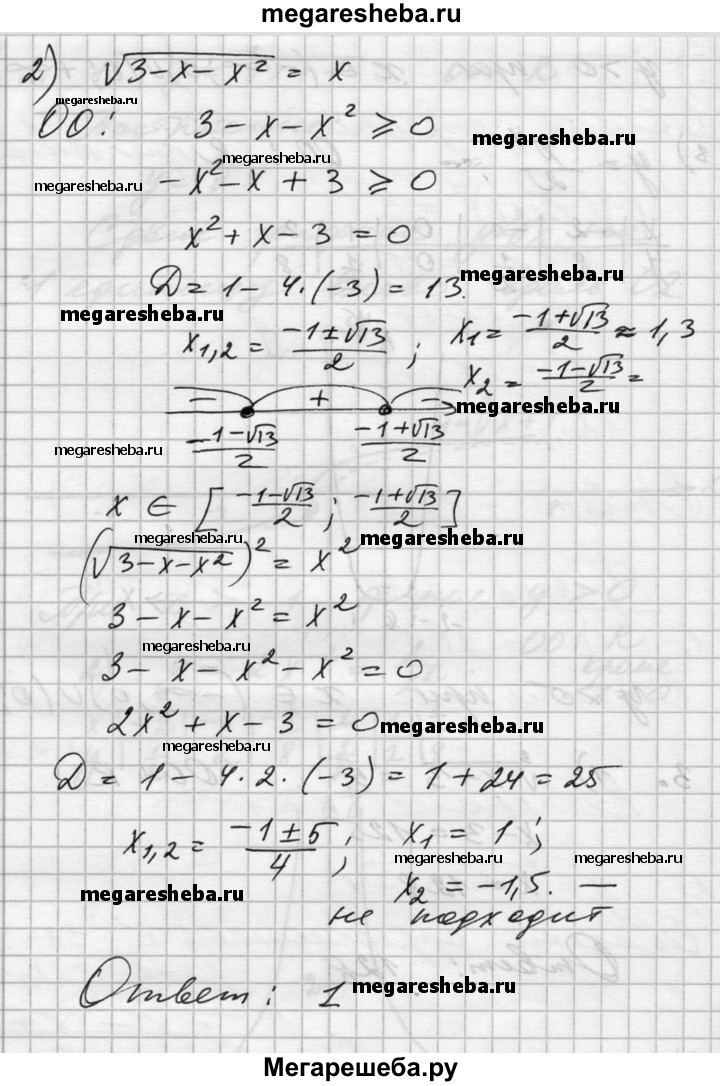 megaresheba.ru
2) √(3-x-x²) = x
megaresheba.ru
ОО: 3-x-x² ⩾ 0 megaresheba.ru
megaresheba.ru
megaresheba.ru -x²-x+3 ⩾ 0
x²+x-3=0
D=1-4·(-3)=13. megaresheba.ru
megaresheba.ru
x₁,₂ = (-1±√13)/2 ; x₁ = (-1+√13)/2 ≈ 1,3
x₂ = (-1-√13)/2 =
- + - megaresheba.ru
megaresheba.ru (-1-√13)/2 (-1+√13)/2
x ∈ [(-1-√13)/2 ; (-1+√13)/2]
megaresheba.ru megaresheba.ru
(√(3-x-x²))² = x²
3-x-x²=x²
megaresheba.ru
3-x-x²-x²=0
2x²+x-3=0 megaresheba.ru
megaresheba.ru
D=1-4·2·(-3)=1+24=25
x₁,₂ = (-1±5)/4 ; x₁=1;
megaresheba.ru megaresheba.ru
megaresheba.ru x₂=-1,5. —
не подходит
Ответ: 1 megaresheba.ru
Мегарешеба.ру